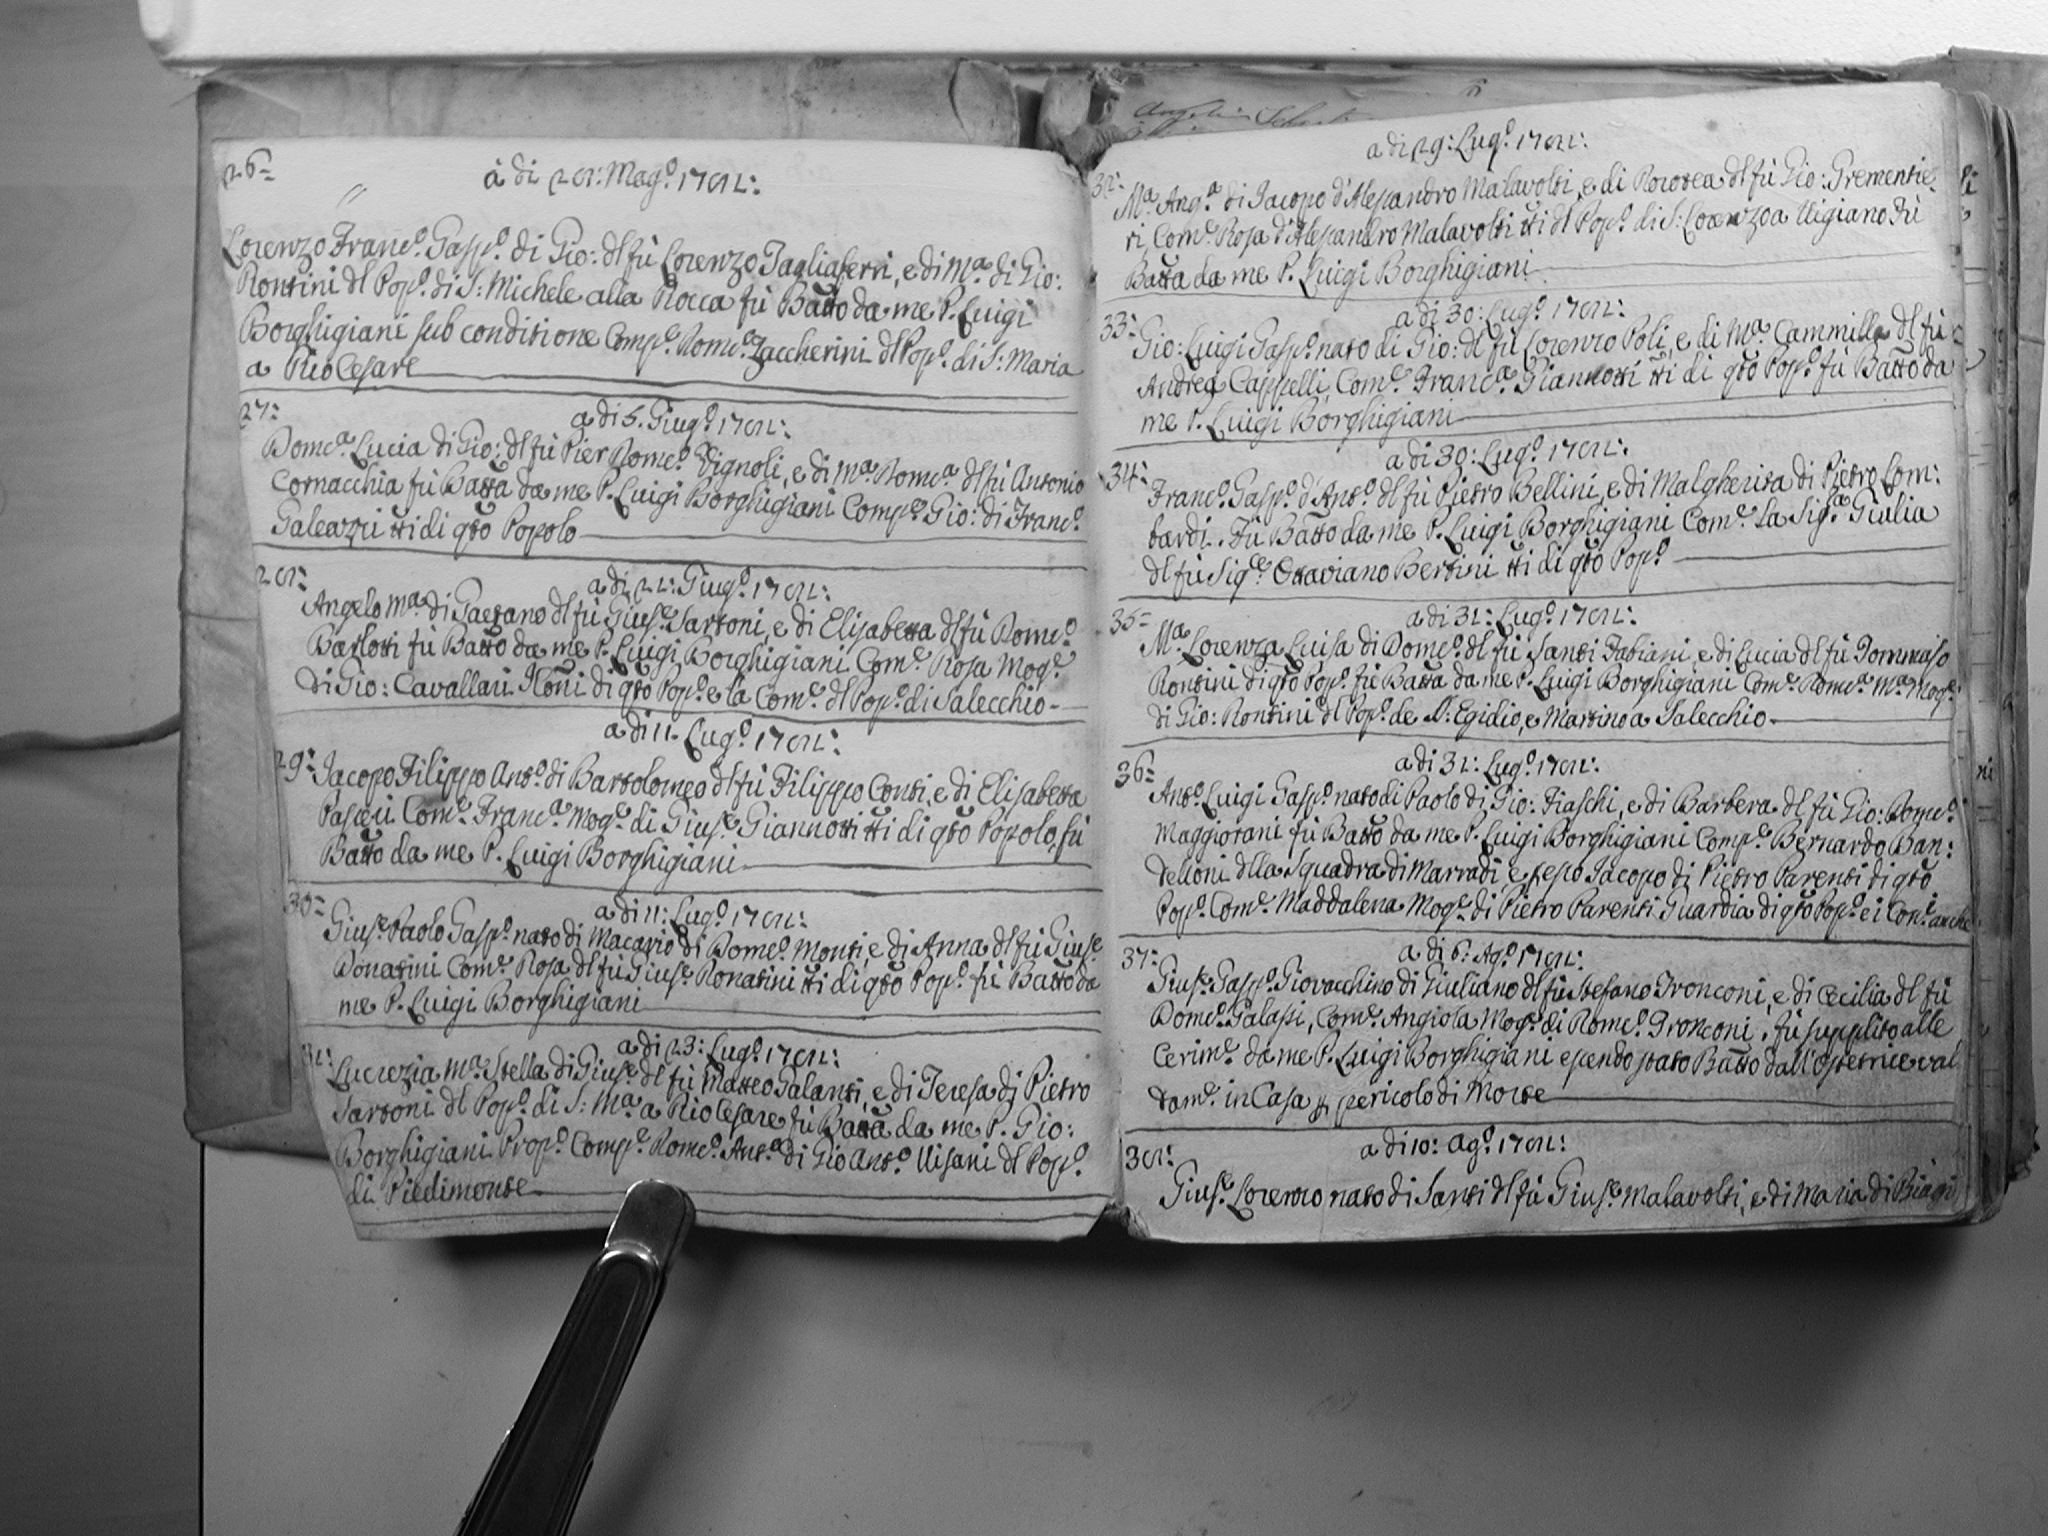 26=
à di 28: Mag.º 1782:
Lorenzo Franc.º Gasp.º di Gio: dl fù Lorenzo Tagliaferri, e di M.ª di Gio:
Rontini dl Pop.º di S: Michele alla Rocca fù Batto da me P. Luigi
Borghigiani sub conditione Comp.e Dom.co Zaccherini dl Pop.º di S: Maria
a Rio Cesare
27:
a di 5. Giug.º 1782:
Dom.ca Lucia di Gio: dl fù Pier Dom.co Vignoli, e di M.ª Dom.ca dl fù Antonio
Cornacchia fù Batta da me P. Luigi Borghigiani Comp.e Gio: di Franc.º
Galeazzi tti di qto Popolo
28:
a di 22: Giug.º 1782:
Angelo M.ª di Gaetano dl fù Gius.e Sartoni, e di Elisabetta dl fù Dom.co
Barlotti fù Batto da me P. Luigi Borghigiani Com.e Rosa Mog.e
di Gio: Cavallari Iloni di qto Pop.º e la Com.e dl Pop.º di Salecchio
a di 11. Lug.º 1782:
29: Iacopo Filippo Ant.º di Bartolomeo dl fù Filippo Conti, e di Elisabetta
Pasceri Com.e Franc.ª Mog.e di Gius.e Giannotti tti di qto Popolo, fù
Batto da me P. Luigi Borghigiani
30=
a di 11: Lug.º 1782:
Gius.e Paolo Gasp.º nato di Macario di Dom.co Monti, e di Anna dl fù Gius.e
Donatini Com.e Rosa dl fù Gius.e Donatini tti di qto Pop.º fù Batto da
me P. Luigi Borghigiani
31:
a di 23: Lug.º 1782:
Lucrezia M.ª Stella di Gius.e dl fù Matteo Galanti, e di Teresa di Pietro
Sartoni dl Pop.º di S: M.ª a Rio Cesare fù Batta da me P. Gio:
Borghigiani Prop.º Comp.e Dom.co Ant.º di Gio Ant.º Visani dl Pop.º
di Piedimonte
a di 29: Lug.º 1782:
32: M.ª Ang.ª di Iacopo d'Alessandro Malavolti, e di Dorotea dl fù Gio: Trementie=
ri, Com.e Rosa d'Alessandro Malavolti tti dl Pop.º di S: Lorenzo a Vigiano Fù
Batta da me P. Luigi Borghigiani
a di 30: Lug.º 1782:
33: Gio: Luigi Gasp.º nato di Gio: dl fù Lorenzo Poli, e di M.ª Cammilla dl fù
Andrea Cappelli, Com.e Franc.ª Giannotti tti di qto Pop.º fù Batto da
me P. Luigi Borghigiani
a di 30: Lug.º 1782:
34: Franc.º Gasp.º d'Ant.º dl fù Pietro Bellini, e di Malgherita di Pietro Lom:
bardi. Fù Batto da me P. Luigi Borghigiani Com.e La Sig.ª Giulia
dl fù Sig.e Ottaviano Bertini tti di qto Pop.º
35=
a di 31: Lug.º 1782:
M.ª Lorenza Luisa di Dom.co dl fù Santi Fabiani, e di Lucia dl fù Tommaso
Rontini di qto Pop.º fù Batta da me P. Luigi Borghigiani Com.e Dom.ca M.ª Mog.e
di Gio: Rontini dl Pop.º de S: Egidio, e Martino a Salecchio
36=
a di 31: Lug.º 1782:
Ant.º Luigi Gasp.º nato di Paolo di Gio: Fiaschi, e di Barbera dl fù Gio: Dom.co
Maggiorani fù Batto da me P. Luigi Borghigiani Comp.e Bernardo Ban:
delloni dlla Squadra di Marradi, e Iacopo di Pietro Parenti di qto
Pop.º Com.e Maddalena Mog.e di Pietro Parenti Guardia di qto Pop.º e i Con.i anche
37:
a di 6: Ag.º 1782:
Gius.e Gasp.º Giovacchino di Giuliano dl fù Stefano Tronconi, e di Cecilia dl fù
Dom.co Galassi, Com.e Angiola Mog.e di Dom.co Tronconi. fù supplito alle
Cerim.e da me P. Luigi Borghigiani essendo stato Batto dall'Ostetrice val
tam.e in Casa p pericolo di Morte
38:
a di 10: Ag.º 1782:
Gius.e Lorenzo nato di Santi dl fù Gius.e Malavolti, e di Maria di Biagi